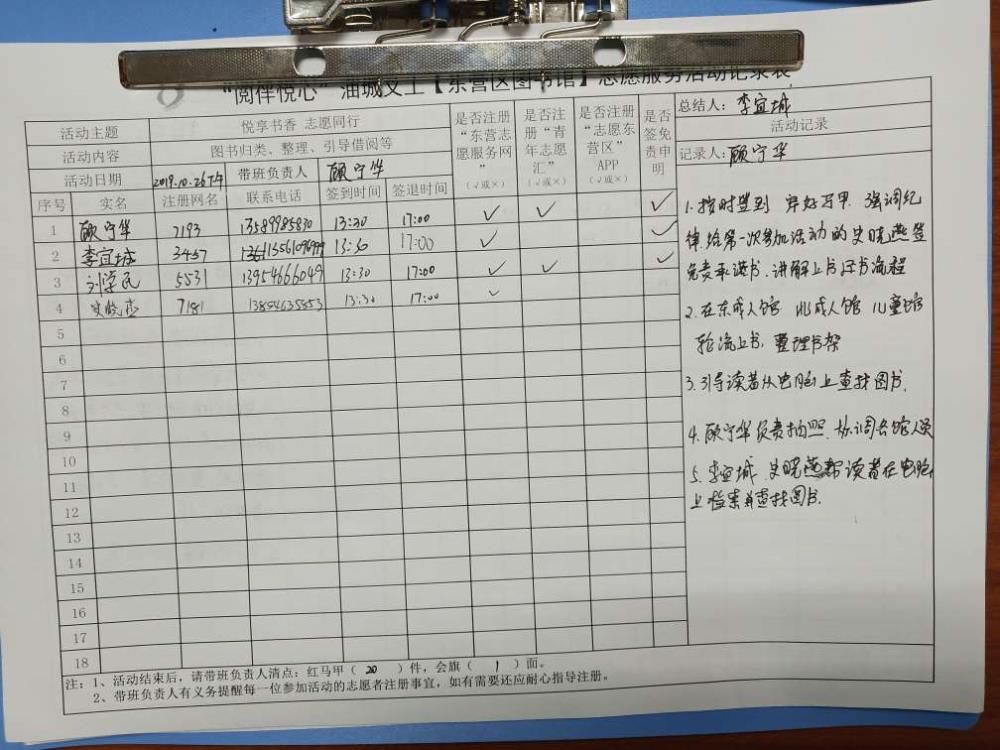 “阅伴悦心”油城义工【东营区图书馆】志愿服务活动记录表
活动主题 悦享书香 志愿同行
活动内容 图书归类、整理、引导借阅等
活动日期 2019.10.26下午 带班负责人 顾宁华
序号 实名 注册网名 联系电话 签到时间 签退时间 是否注册“东营志愿服务网”（√或×） 是否注册“青年志愿汇”（√或×） 是否注册“志愿东营区”APP（√或×） 是否签免责申明
1 顾宁华 7193 13589985830 13:30 17:00 √ √ √
2 李宜城 3457 13:30 17:00 √ √
3 刘学民 5531 13954666049 13:30 17:00 √ √ √
4 7181 13854635553 13:30 17:00 √
5
6
7
8
9
10
11
12
13
14
15
16
17
18
总结人：李宜城
活动记录
记录人：顾宁华
1.按时签到 穿好马甲 强调纪
律.给第一次参加活动的史晓燕签
免责承诺书.讲解上书还书流程
2.在东成人馆 北成人馆 儿童馆
轮流上书.整理书架
3.引导读者从电脑上查找图书.
4.顾宁华负责拍照.协调各馆人员
5.李宜城.史晓燕帮读者在电脑
上检索并查找图书.
注：1、活动结束后，请带班负责人清点：红马甲（ 20 ）件，会旗（ 1 ）面。
2、带班负责人有义务提醒每一位参加活动的志愿者注册事宜，如有需要还应耐心指导注册。